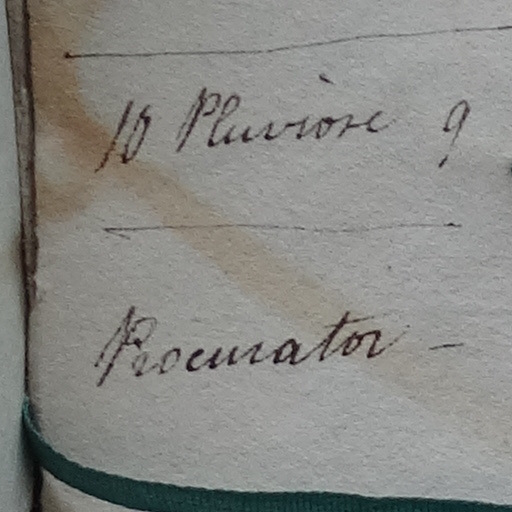 10 Pluviôse 9
Procurator –